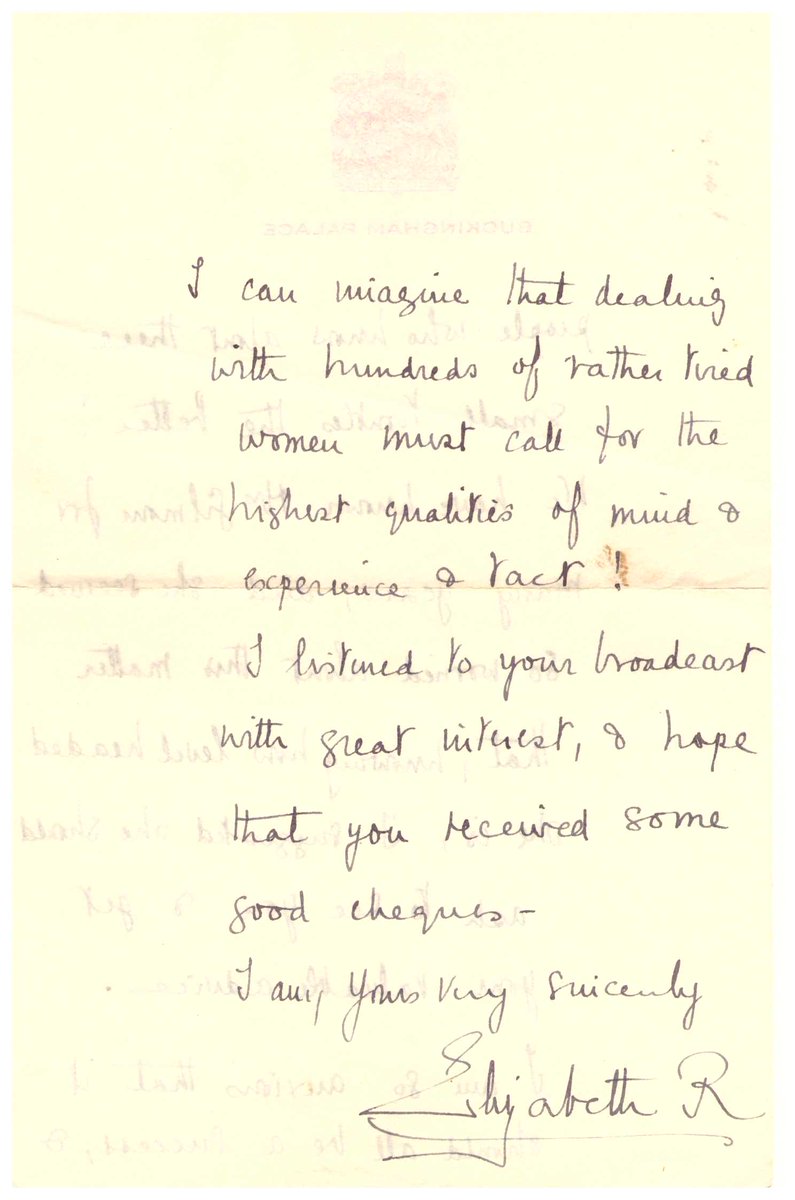 I can imagine that dealing
with hundreds of rather tired
women must call for the
highest qualities of mind &
experience & tact !
I listened to your broadcast
with great interest, & hope
that you received some
good cheques –
I am, Yours very sincerely
Elizabeth R